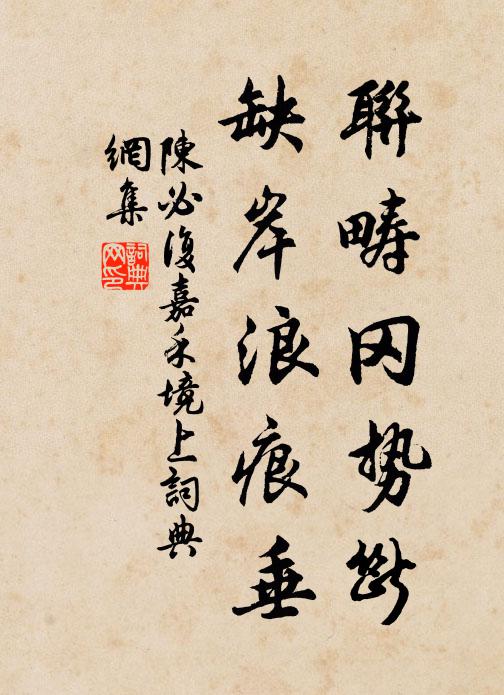 聯疇冈势斷
缺岸浪痕垂
陳必復嘉禾境上詞典
網集
詞典网印